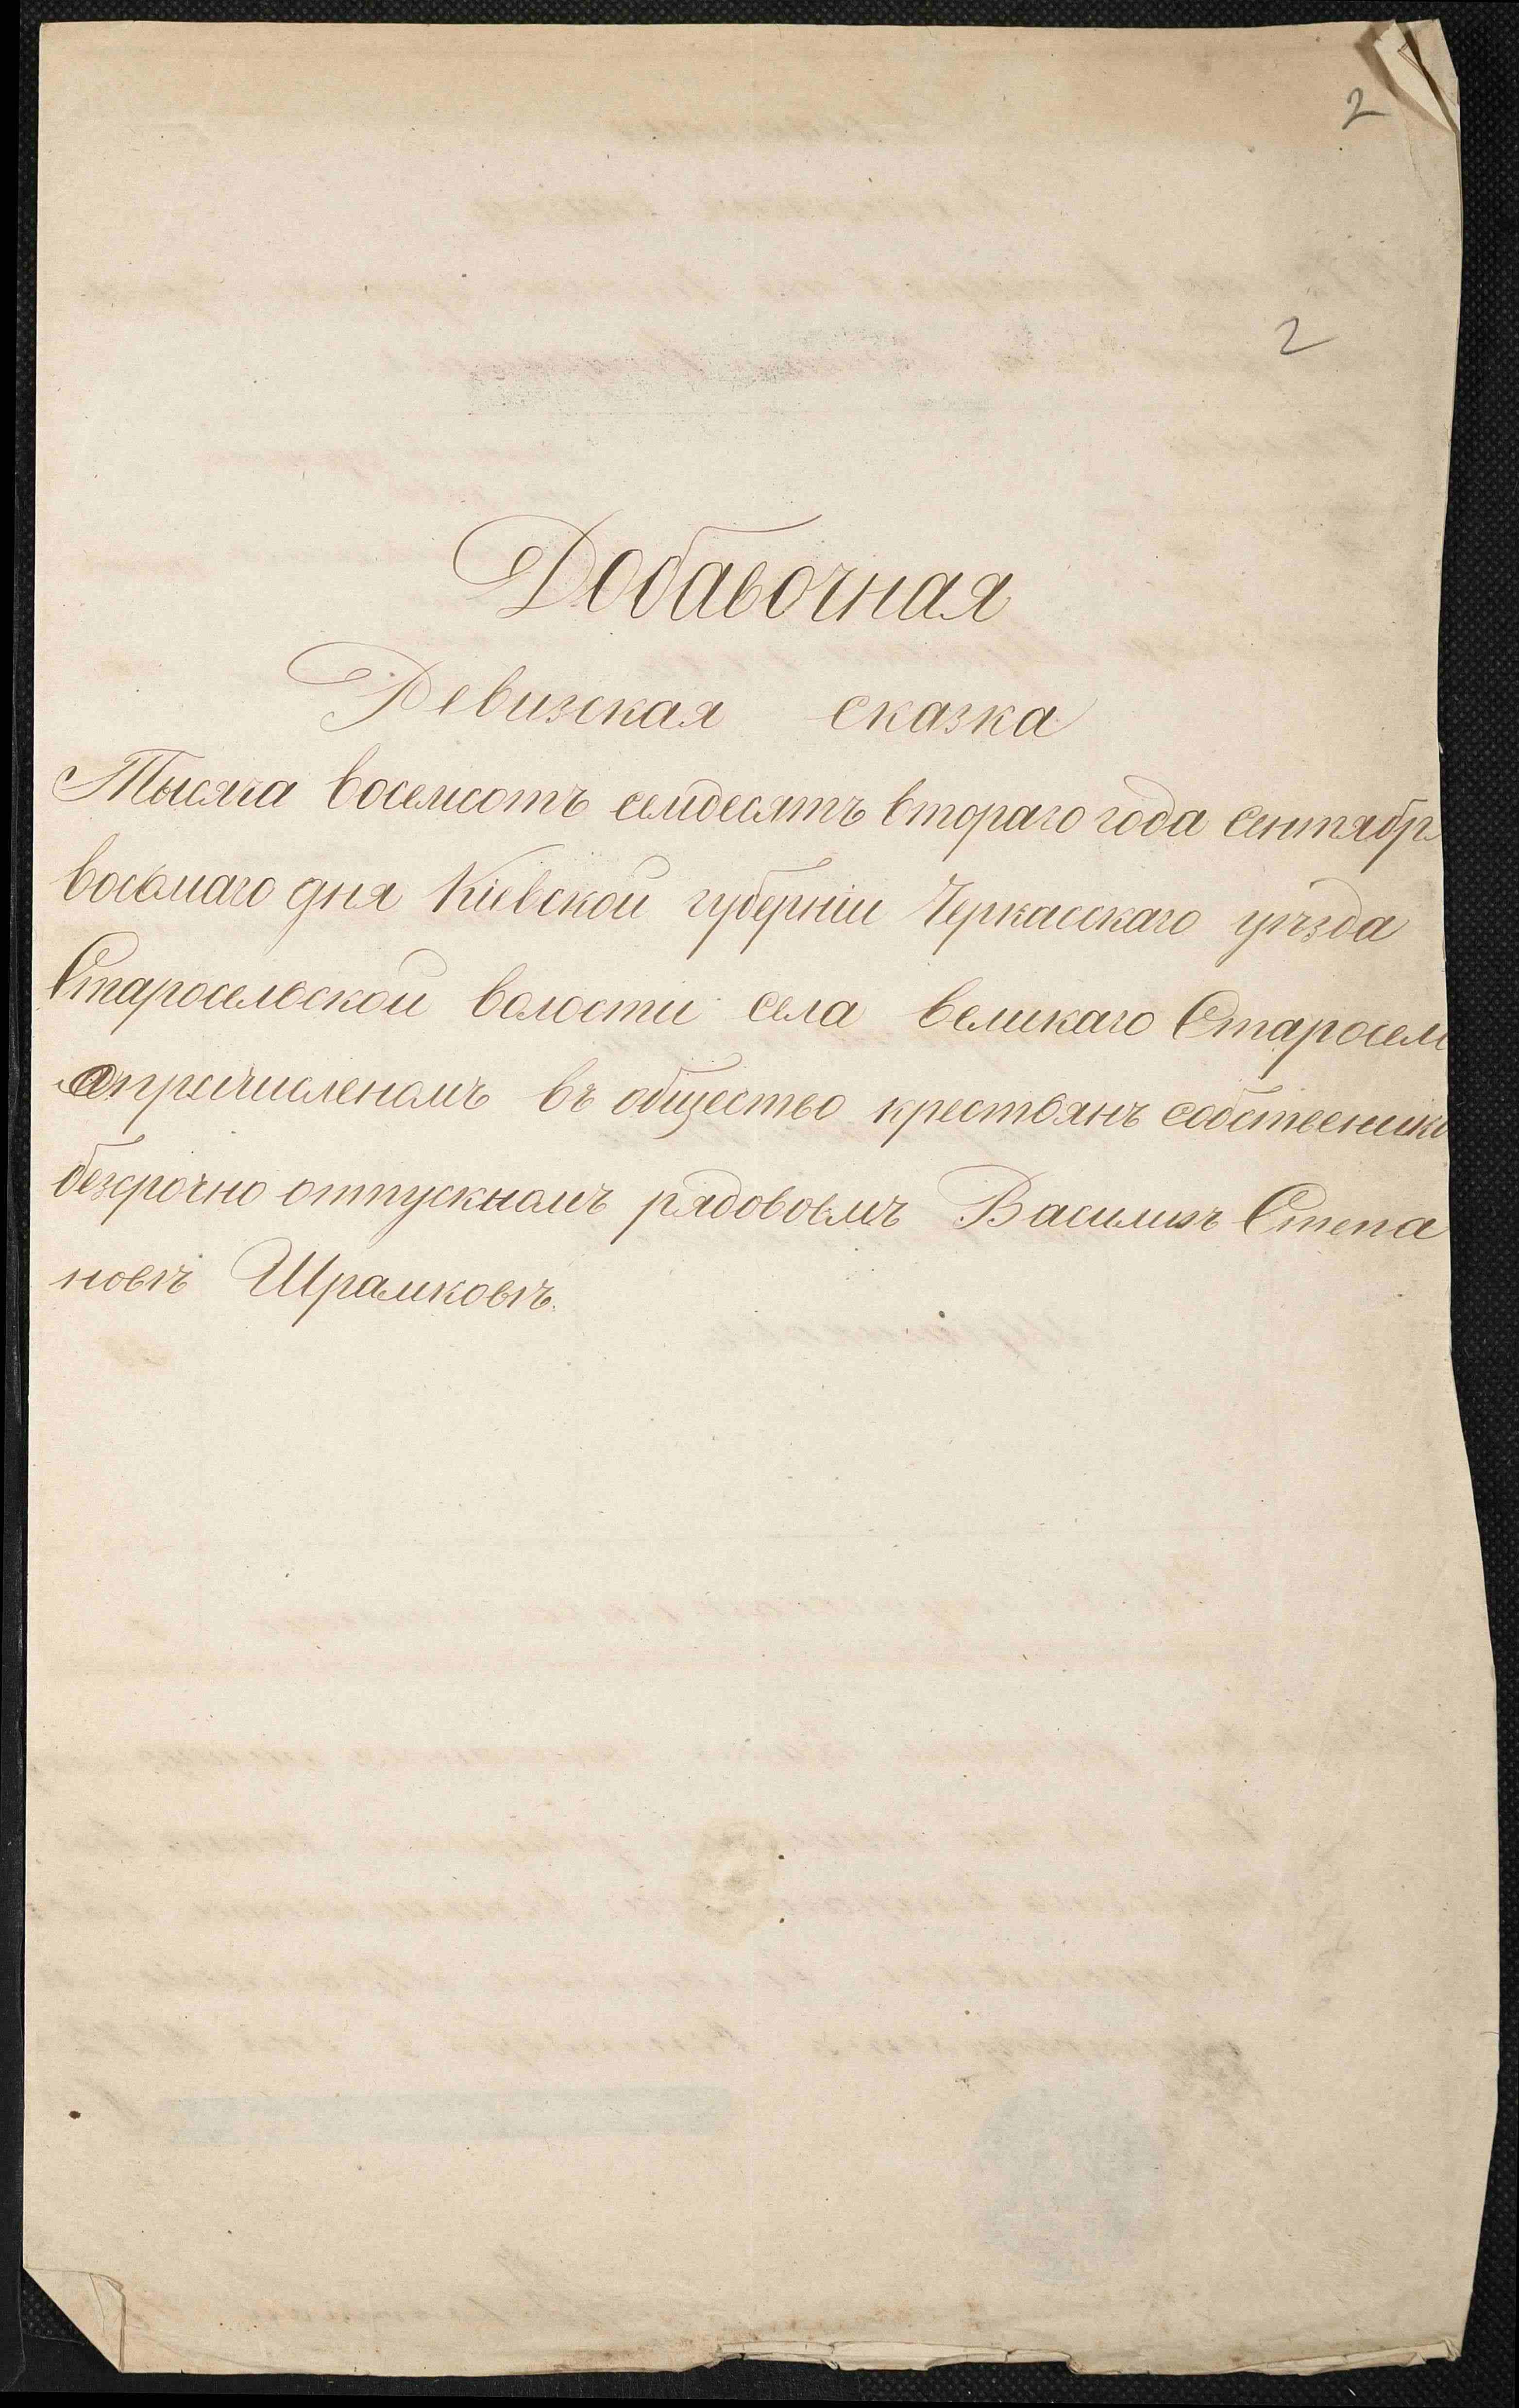 2
2
Добавочная
Ревизская сказка
Тысяча восемсотъ семдесятъ втораго года Сентябр
восьмаго дня Кіевской губерніи Черкасскаго уѣзда
Старосельской волости села великаго Старосел
опричисленомъ въ общество крестьянъ собственик
безсрочно отпускномъ рядовоемъ Василиѣ Степа
новѣ Шрамковѣ.